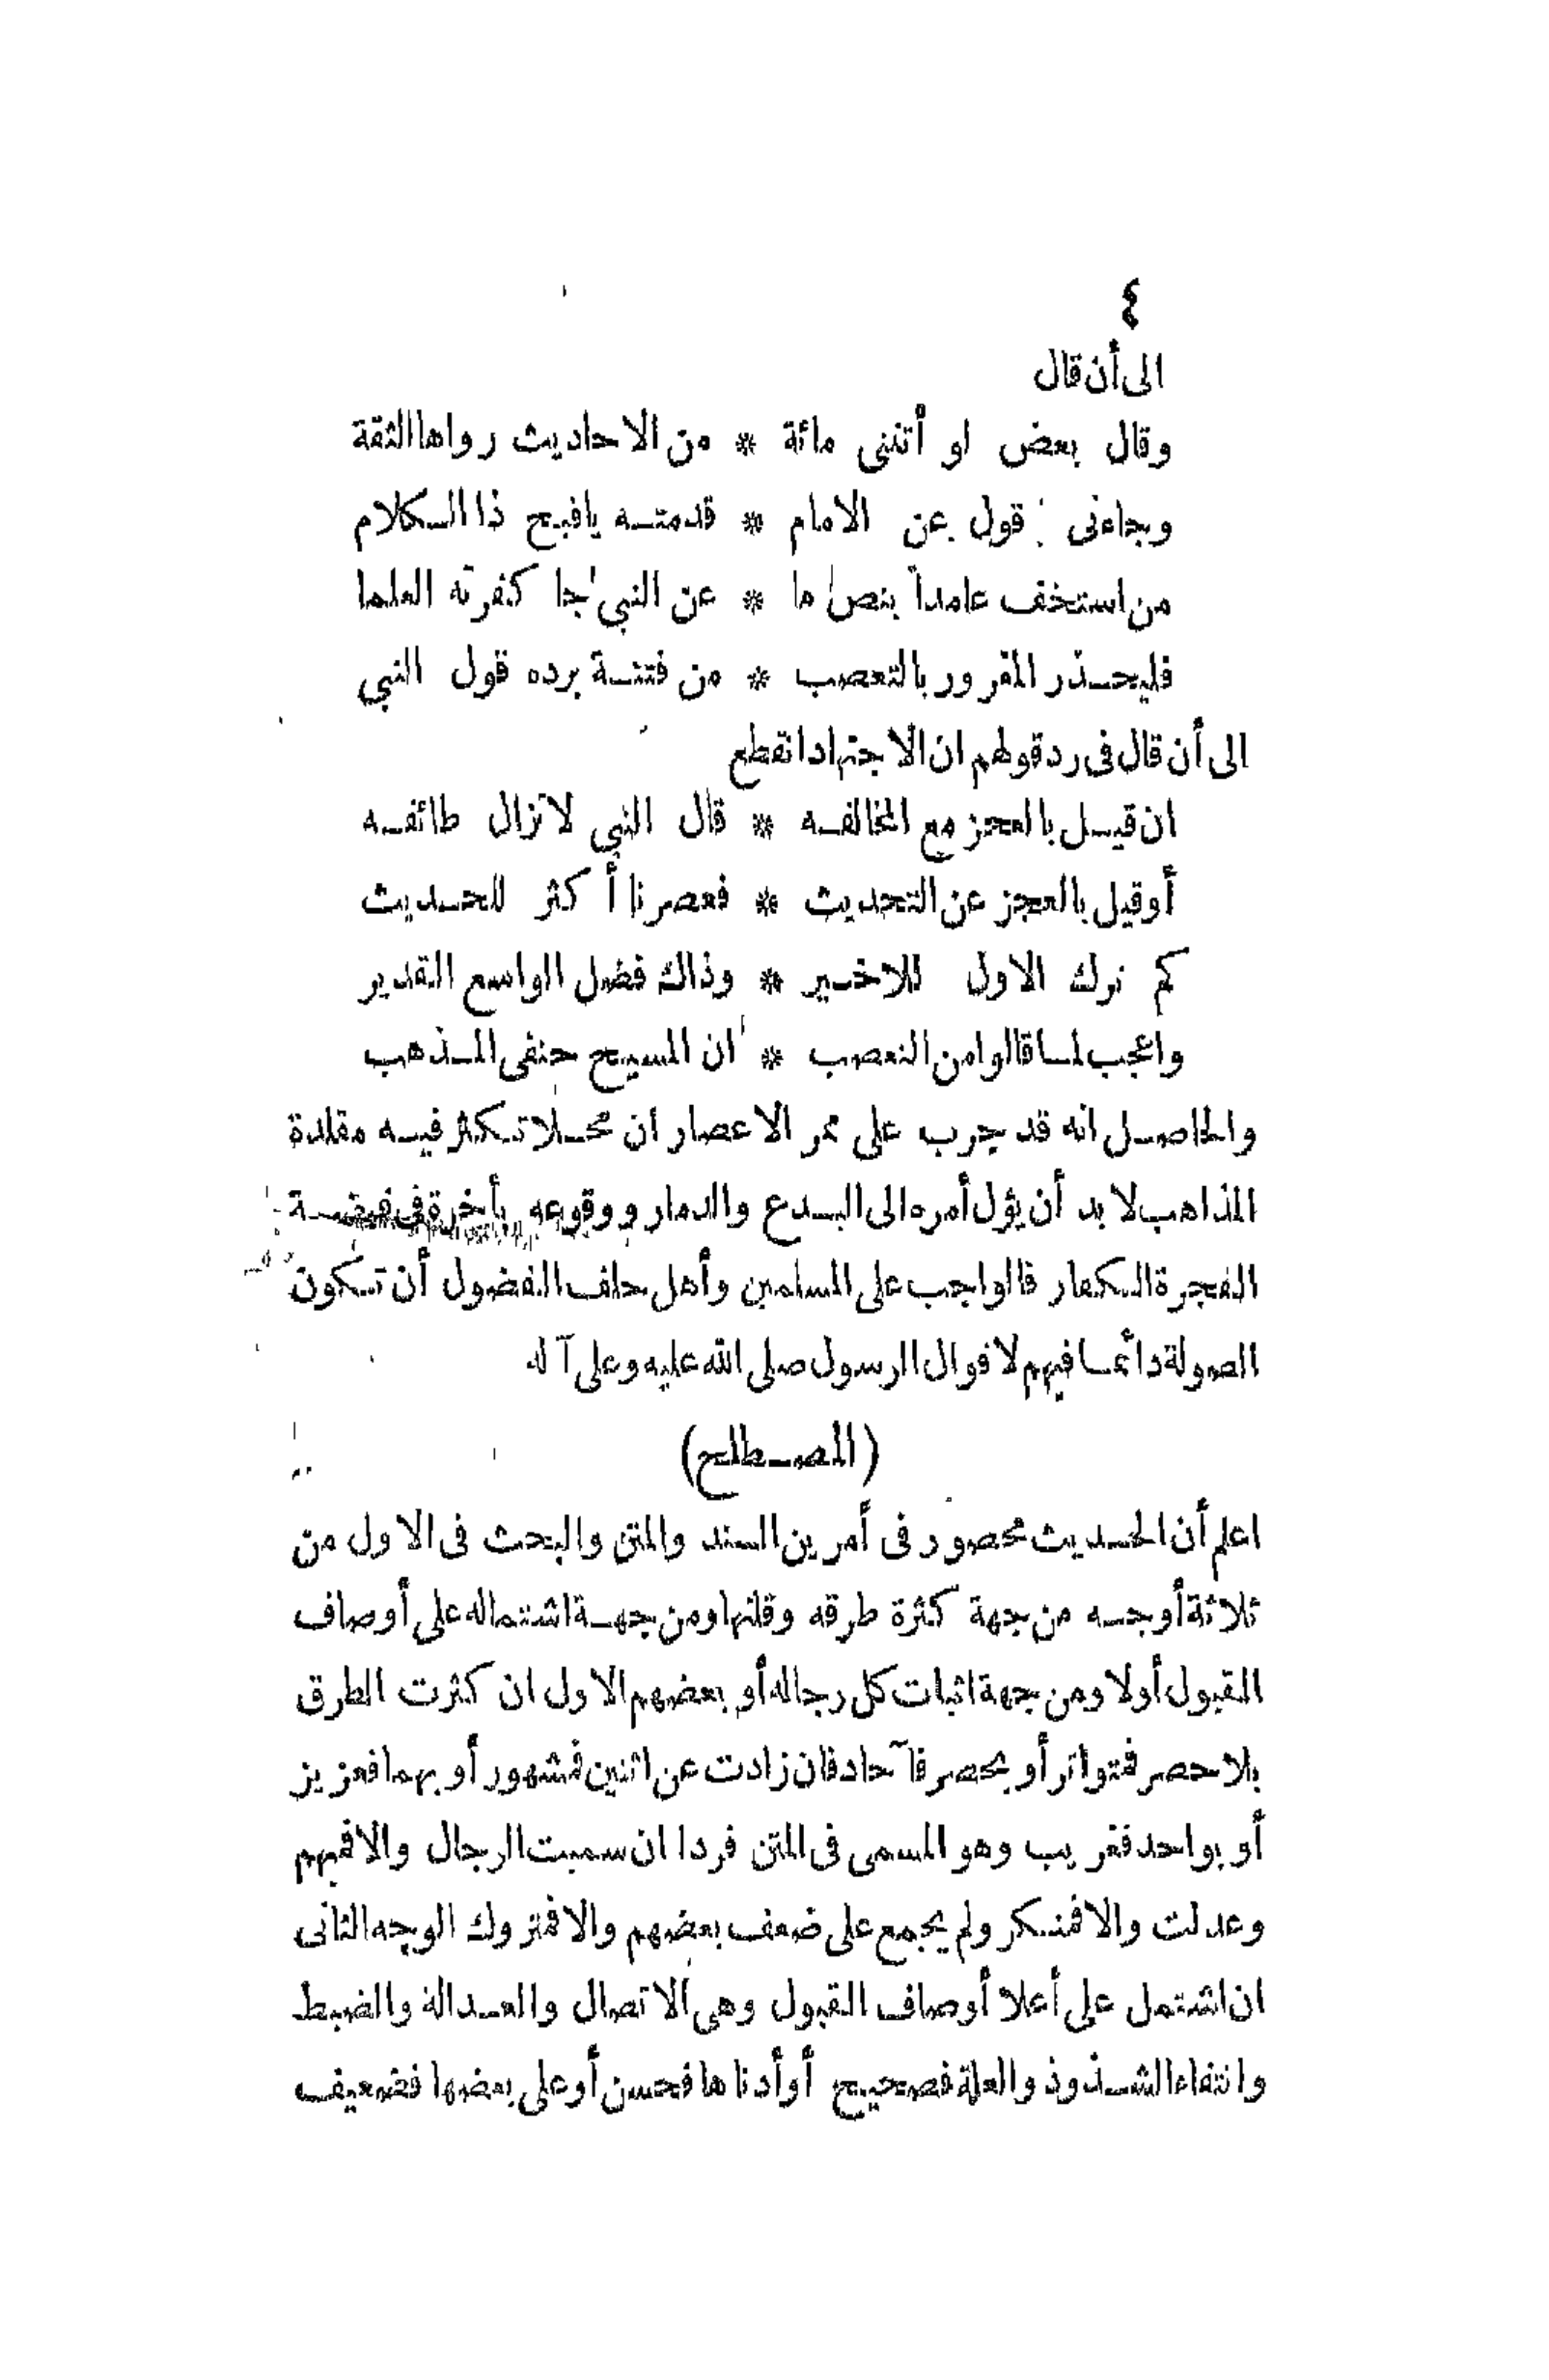 ٤
الى أن قال
وقال بعض لو أتتنى مائة * من الاحاديث رواها الثقة
وجاءنى قول عن الامام * قدمته ياقبح ذا الكلام
من استخف عامداً بنص ما * عن النبي جا كفرته العلما
فليحذر المغرور بالتعصب * من فتنة برده قول النبي
الى أن قال فى رد قولهم ان الاجتهاد انقطع
ان قيل بالعجز مع المخالفه * قال النبي لا تزال طائفه
أوقيل بالعجز عن التحديث * فعصرنا أكثر للحديث
كم ترك الاول للاخير * وذاك فضل الواسع القدير
واعجب لما قالوا من التعصب * ان المسيح حنفى المذهب
والحاصل انه قد جرب على ممر الاعصار ان محلا تكثر فيه مقلدة
المذاهب لا بد أن يؤل أمره الى البدع والدمار ووقوعه بأخرة فى قبضة
الفجرة الكفار فالواجب على المسلمين وأهل حلف الفضول أن تكون
الصولة دائما فيهم لاقوال الرسول صلى الله عليه وعلى آله
(المصطلح)
اعلم أن الحديث محصور فى أمرين السند والمتن والبحث فى الاول من
ثلاثة أوجه من جهة كثرة طرقه وقلتها ومن جهة اشتماله على أوصاف
القبول أولا ومن جهة اثبات كل رجاله أو بعضهم الاول ان كثرت الطرق
بلا حصر فمتواتر أو بحصر فآحاد فان زادت عن اثنين فمشهور أو بهما فعزيز
أو بواحد فغريب وهو المسمى فى المتن فردا ان سميت الرجال والا فمبهم
وعدلت والا فمنكر ولم يجمع على ضعف بعضهم والا فمتروك الوجه الثانى
ان اشتمل على أعلا أوصاف القبول وهى الاتصال والعدالة والضبط
وانتفاء الشذوذ والعلة فصحيح أو أدناها فحسن أو على بعضها فضعيف